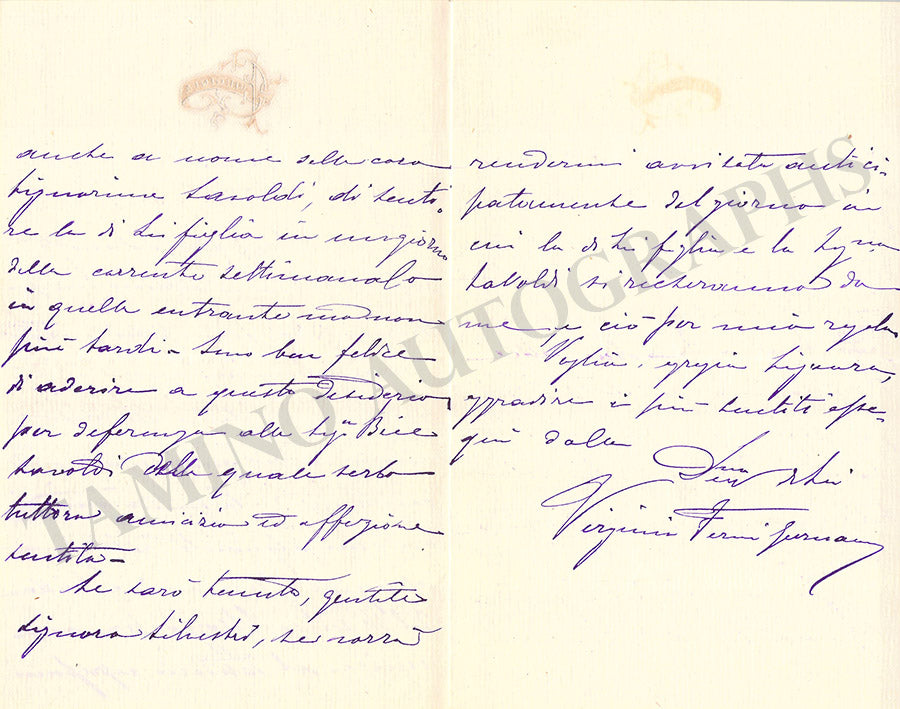 anche a nome della cara
Signorina Savoldi, di senti-
re la di Lei figlia in un giorno
della corrente settimana o
in quella entrante ma non
più tardi - Sono ben felice
di aderire a questo desiderio,
per deferenza alla Sigª Bice
Savoldi della quale serbo
tuttora amicizia ed affezione
sentita -
Le sarò tenuta, gentile
Signora Silvestri, se vorrà
rendermi avvisata antici-
patamente del giorno in
cui la di Lei figlia e la Signa
Savoldi si recheranno da
me, e ciò per mia regola
Voglia, egregia Signora,
aggradire i più sentiti osse-
qui dalla
Dev.ma di Lei
Virginia Fermi Germano
TAMINO AUTOGRAPHS